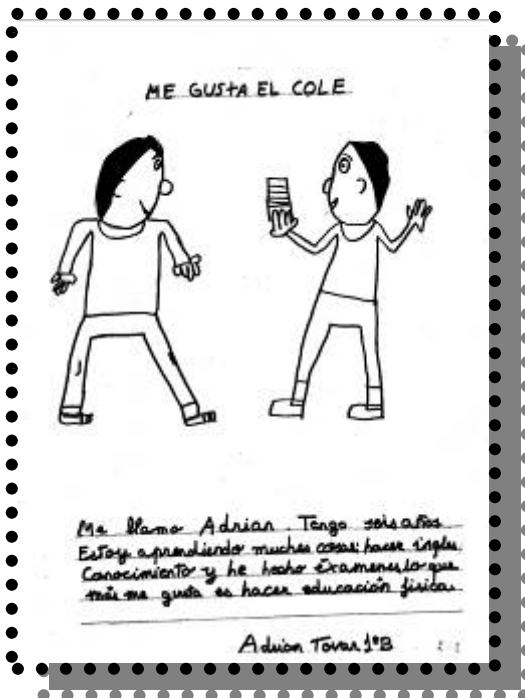 ME GUSTA EL COLE
Me llamo Adrian. Tengo seis años
Estoy aprendiendo muchas cosas: hacer ingles
Conocimiento y he hecho Examenes lo que
más me gusta es hacer educación fisica.
Adrian Tovar 1ºB